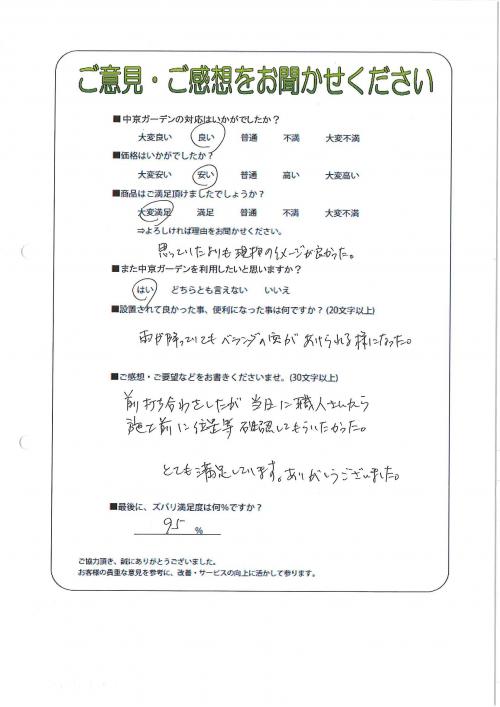 ご意見・ご感想をお聞かせください
■中京ガーデンの対応はいかがでしたか？
大変良い 良い 普通 不満 大変不満
■価格はいかがでしたか？
大変安い 安い 普通 高い 大変高い
■商品はご満足頂けましたでしょうか？
大変満足 満足 普通 不満 大変不満
⇒よろしければ理由をお聞かせください。
思っていたよりも現物のイメージが良かった。
■また中京ガーデンを利用したいと思いますか？
はい どちらとも言えない いいえ
■設置されて良かった事、便利になった事は何ですか？(20文字以上)
雨が降っていてもベランダの窓があけられる様になった。
■ご感想・ご要望などをお書きくださいませ。(30文字以上)
前打ち合わせしたが 当日に職人さんから
施工前に位置等確認してもらいたかった。
とても満足しています。ありがとうございました。
■最後に、ズバリ満足度は何％ですか？
95 %
ご協力頂き、誠にありがとうございました。
お客様の貴重な意見を参考に、改善・サービスの向上に活かして参ります。